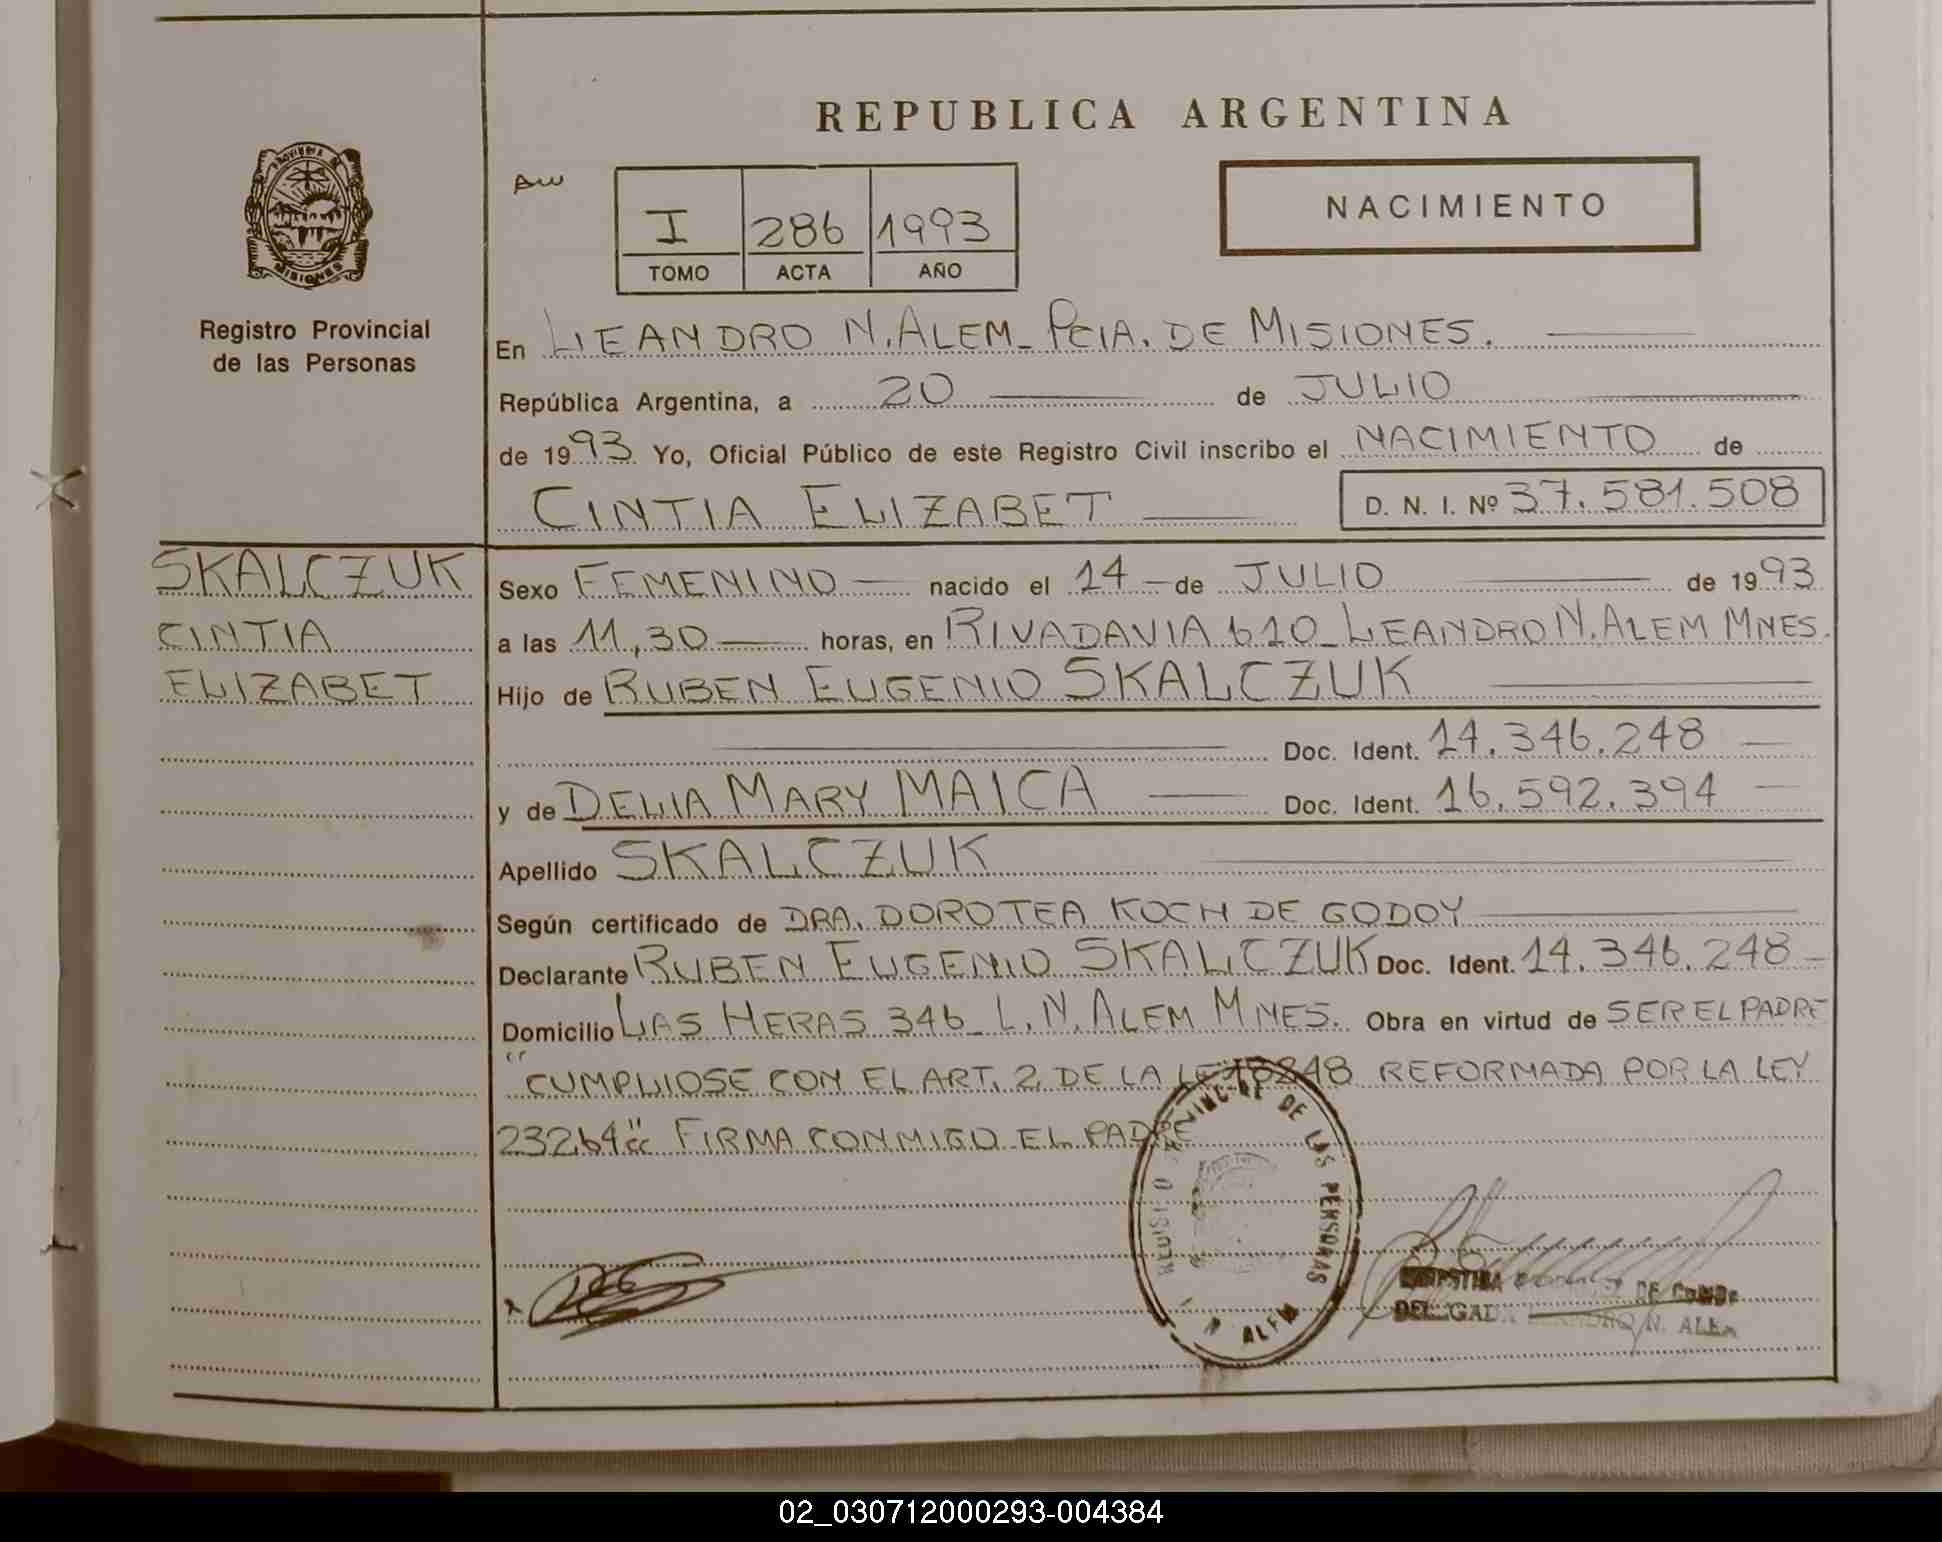 REPUBLICA ARGENTINA
PROVINCIA DE
MISIONES
Registro Provincial
de las Personas
I 286 1993
TOMO ACTA AÑO
NACIMIENTO
En LEANDRO N. ALEM_ PCIA. DE MISIONES.
República Argentina, a 20 de JULIO
de 1993 Yo, Oficial Público de este Registro Civil inscribo el NACIMIENTO de
CINTIA ELIZABET D. N. I. Nº 37.581.508
SKALCZUK
CINTIA
ELIZABET
Sexo FEMENINO nacido el 14 de JULIO de 1993
a las 11,30 horas, en RIVADAVIA 610_ LEANDRO N. ALEM MNES.
Hijo de RUBEN EUGENIO SKALCZUK
Doc. Ident. 14.346.248
y de DELIA MARY MAICA Doc. Ident. 16.592.394
Apellido SKALCZUK
Según certificado de DRA. DOROTEA KOCH DE GODOY
Declarante RUBEN EUGENIO SKALCZUK Doc. Ident. 14.346.248
Domicilio LAS HERAS 346_ L.N. ALEM MNES. Obra en virtud de SER EL PADRE
"CUMPLIOSE CON EL ART. 2 DE LA LEY 18248 REFORMADA POR LA LEY
23264" FIRMA CONMIGO EL PADRE
DE LAS PERSONAS
N. ALEM
02_030712000293-004384